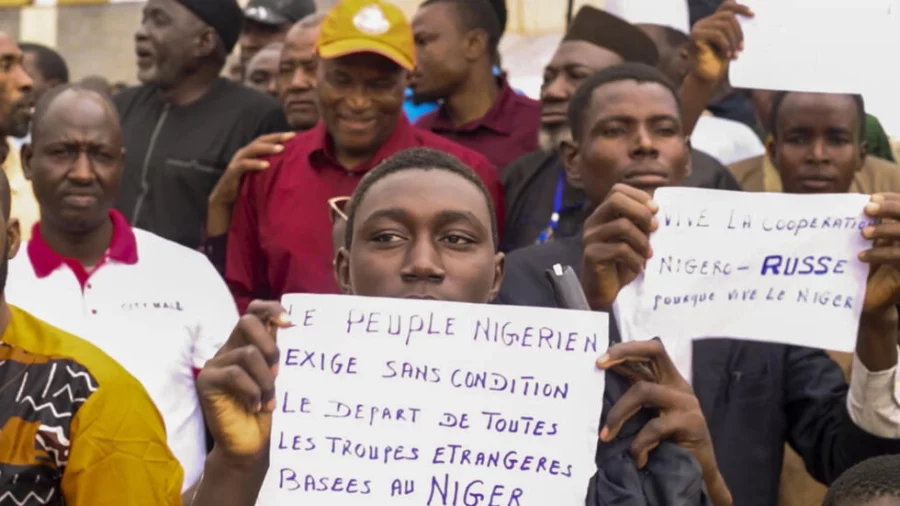 LE PEUPLE NIGERIEN
EXIGE SANS CONDITION
LE DEPART DE TOUTES
LES TROUPES ETRANGERES
BASEES AU NIGER
VIVE LA COOPERATION
NIGERO-RUSSE
pourque vive le NIGER
CITY WALK